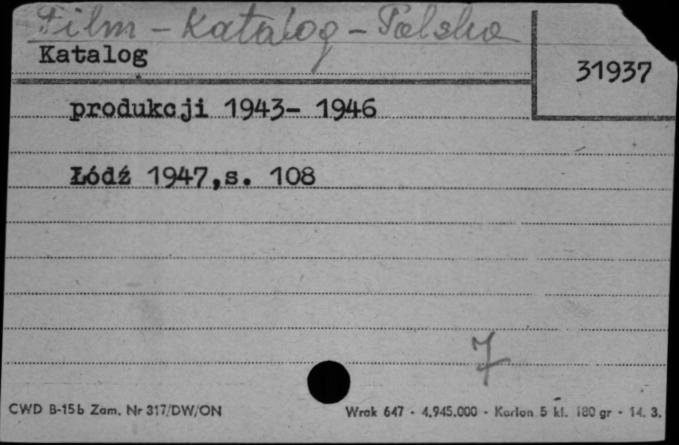 Film - Katalog - Polska
Katalog
31937
produkcji 1943- 1946
Łódź 1947,s. 108
7
CWD B-15b Zam. Nr 317/DW/ON
Wrak 647 - 4.945.000 - Karton 5 kl. 180 gr - 14. 3.